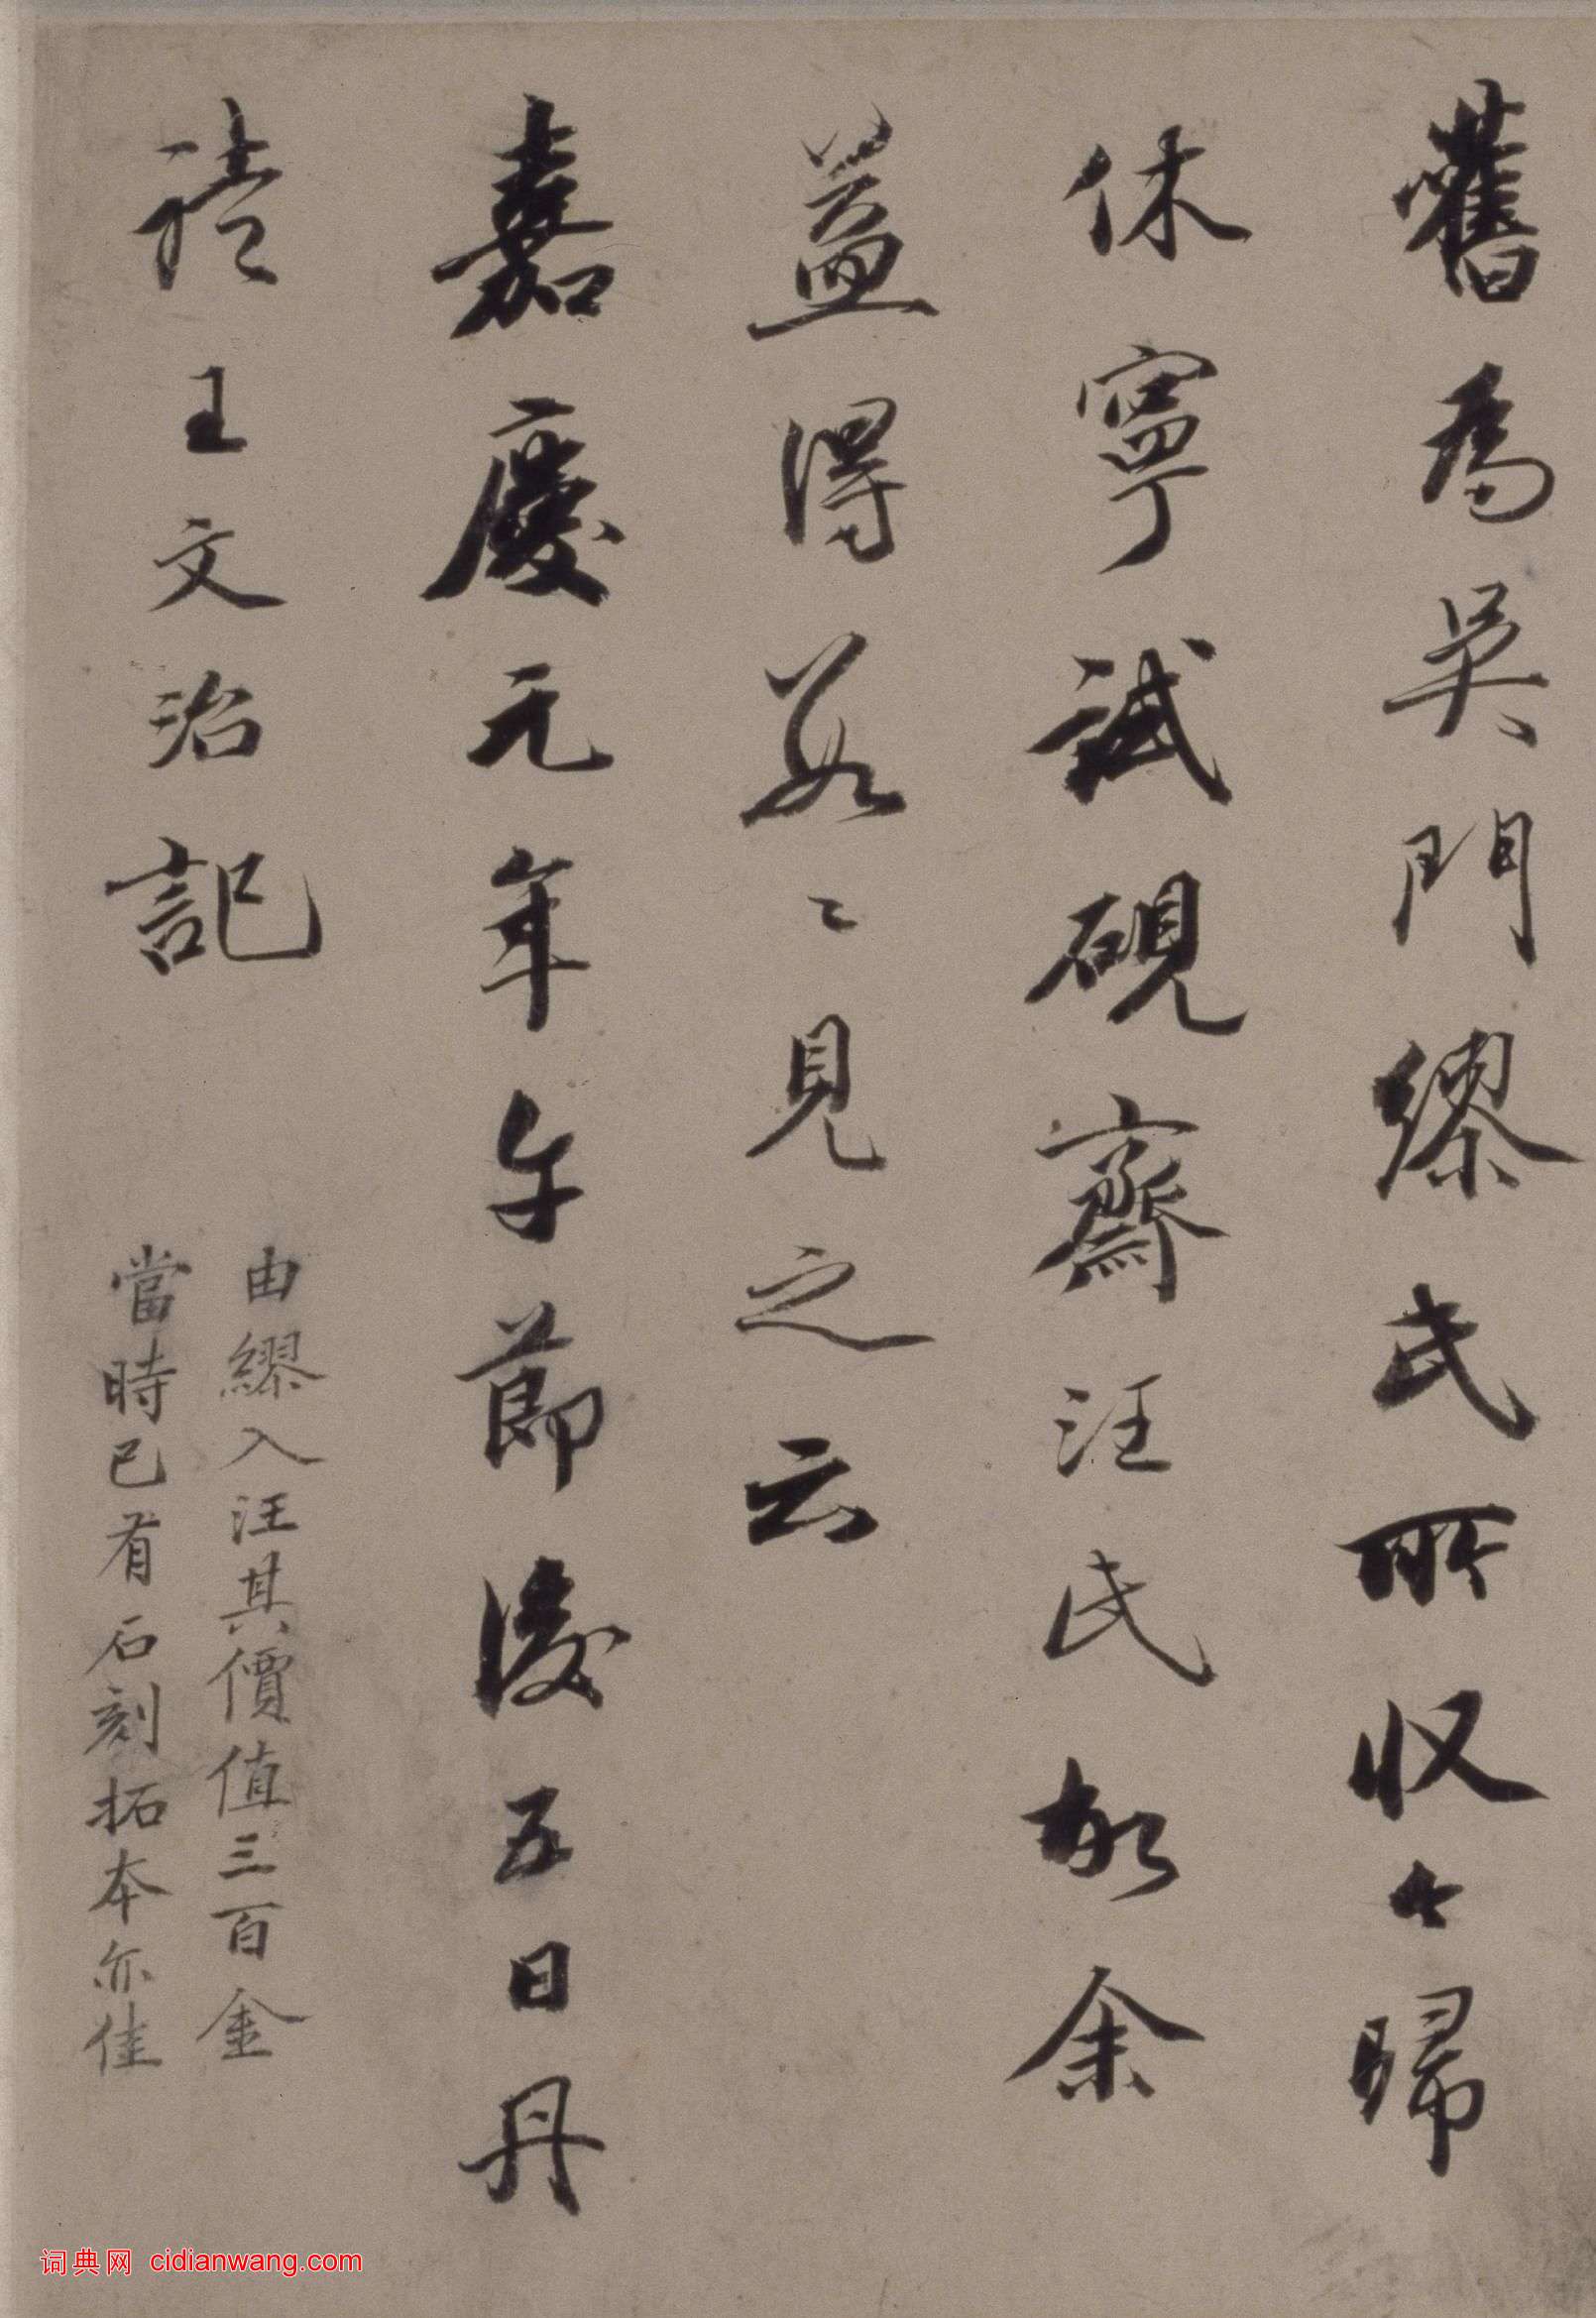 舊為吳門繆氏所收今歸
休寧試硯齋汪氏故余
益得數〻見之云
嘉慶元年午節後五日丹
徒王文治記
由繆入汪其價值三百金
當時已有石刻拓本亦佳
词典网 cidianwang.com